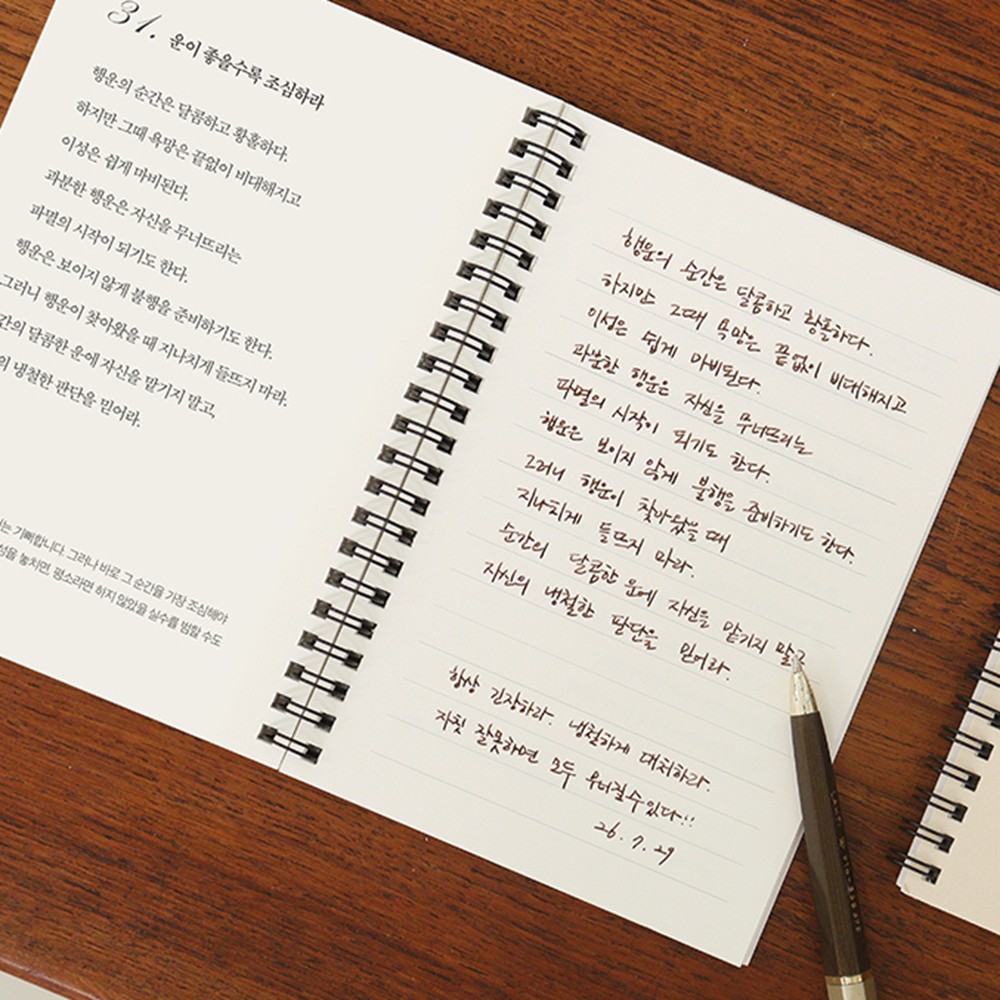 31. 운이 좋을수록 조심하라
행운의 순간은 달콤하고 황홀하다.
하지만 그때 욕망은 끝없이 비대해지고
이성은 쉽게 마비된다.
과분한 행운은 자신을 무너뜨리는
파멸의 시작이 되기도 한다.
행운은 보이지 않게 불행을 준비하기도 한다.
그러니 행운이 찾아왔을 때 지나치게 들뜨지 마라.
간의 달콤한 운에 자신을 맡기지 말고,
의 냉철한 판단을 믿어라.
는 기뻐합니다. 그러나 바로 그 순간을 가장 조심해야
성을 놓치면, 평소라면 하지 않았을 실수를 범할 수도
행운의 순간은 달콤하고 황홀하다.
하지만 그때 욕망은 끝없이 비대해지고
이성은 쉽게 마비된다.
과분한 행운은 자신을 무너뜨리는
파멸의 시작이 되기도 한다.
행운은 보이지 않게 불행을 준비하기도 한다.
그러니 행운이 찾아왔을 때
지나치게 들뜨지 마라.
순간의 달콤한 운에 자신을 맡기지 말고
자신의 냉철한 판단을 믿어라.
항상 긴장하라. 냉철하게 대처하라.
자칫 잘못하면 모두 무너질수있다!!
26. 7. 29